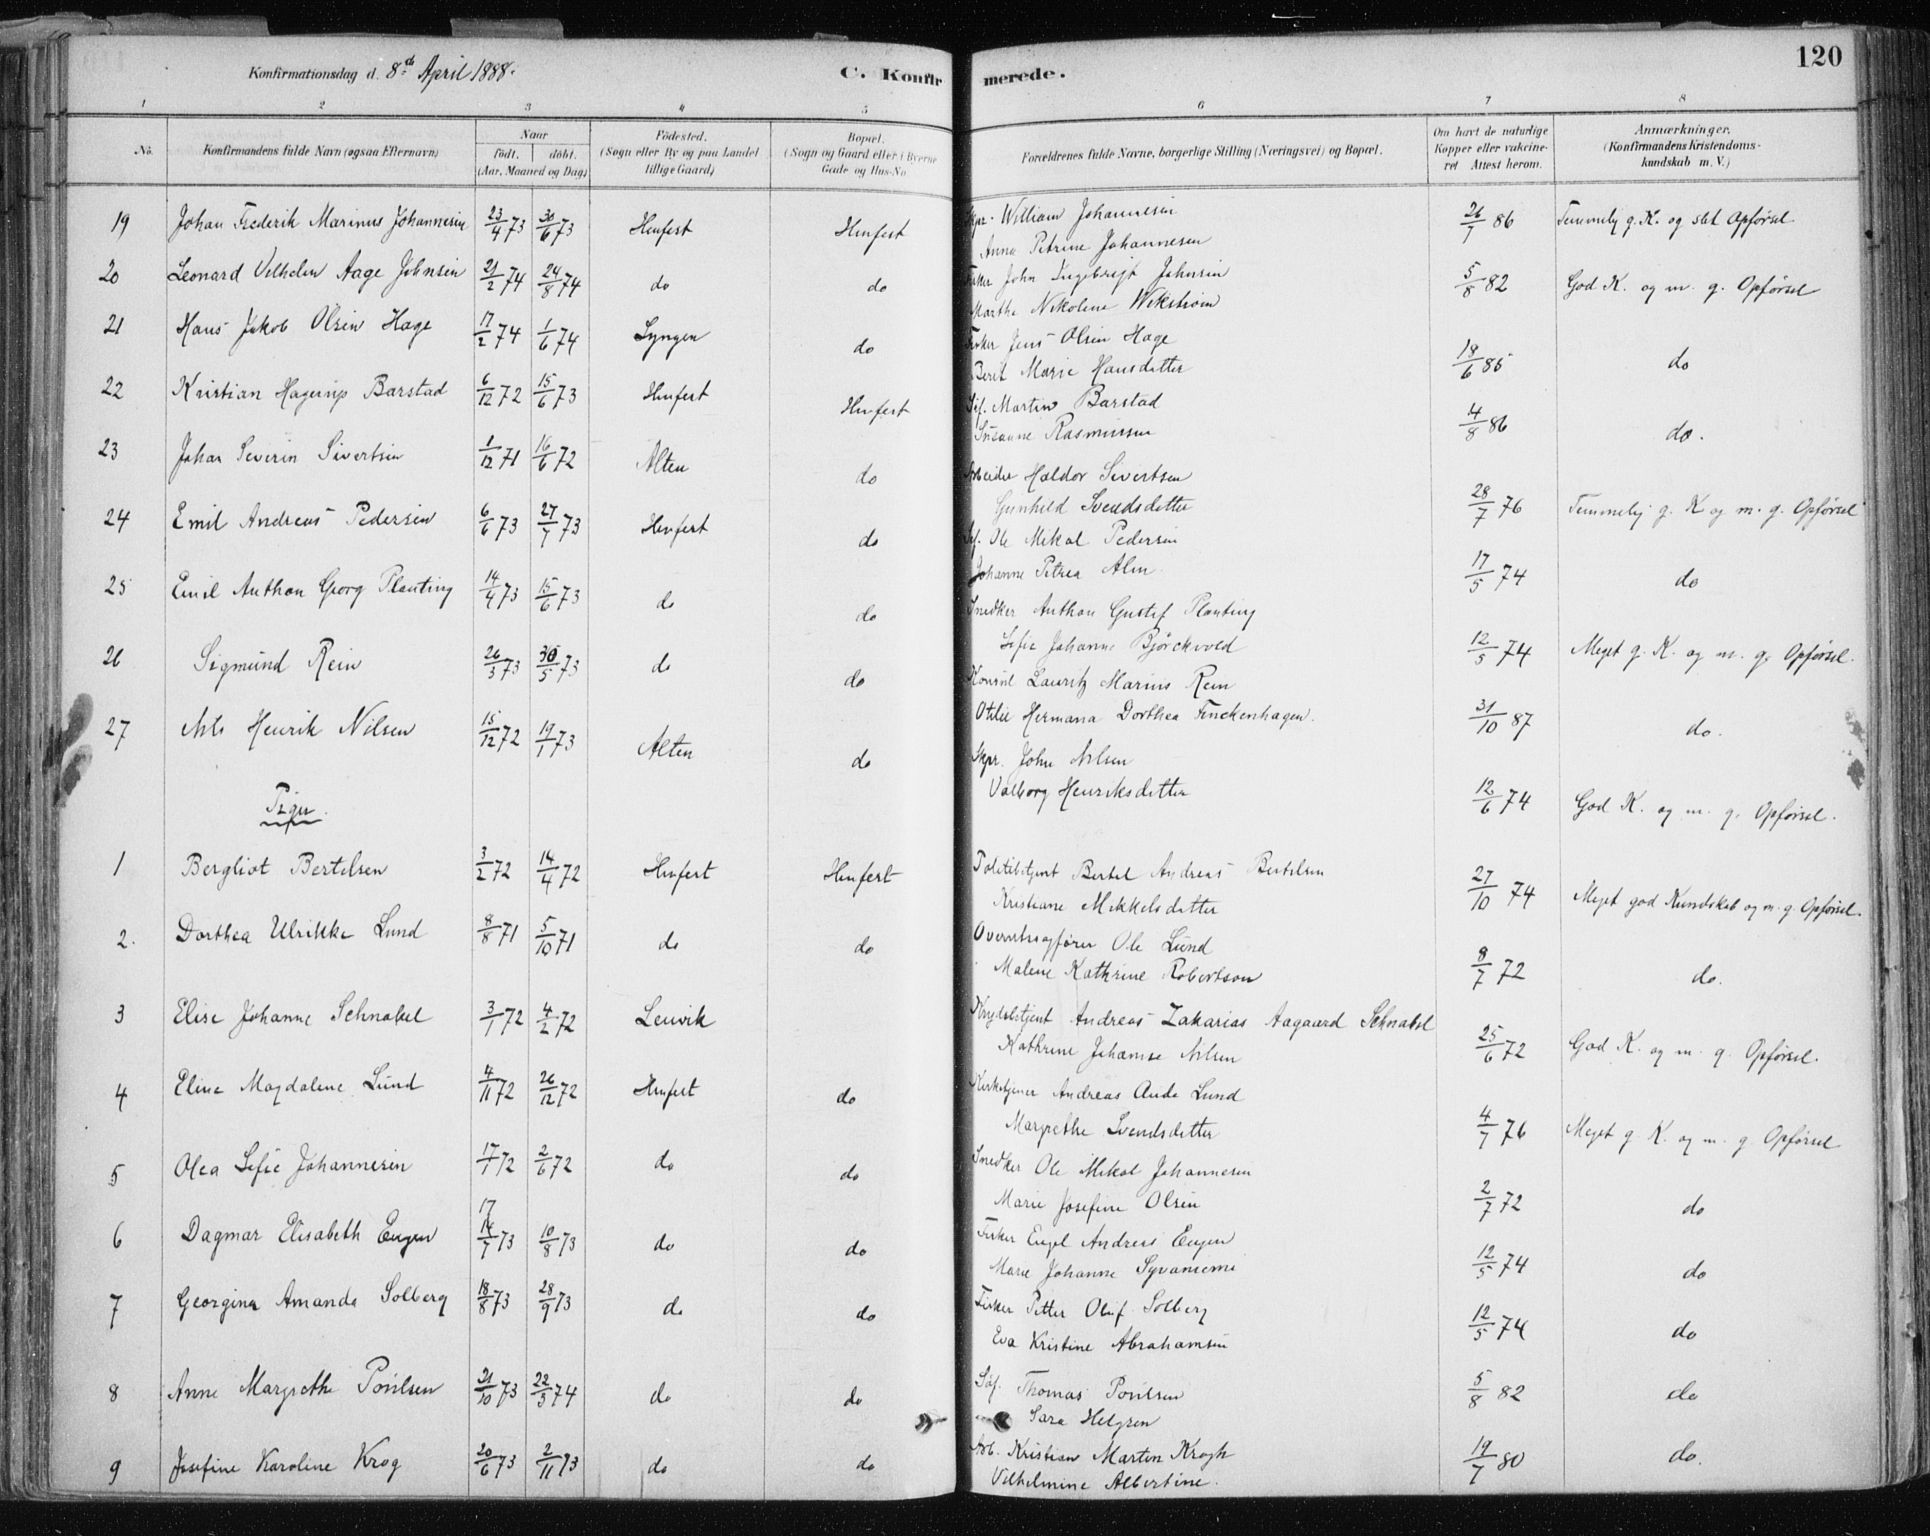 120
Konfirmationsdag d. 8de April 1888.
C. Konfirmerede.
1 2 3 4 5 6 7 8
No.
Konfirmandens fulde Navn (ogsaa Efternavn)
Naar
födt. döbt.
(Aar, Maaned og Dag)
Födested.
(Sogn eller By og paa Landet
tillige Gaard)
Bopæl.
(Sogn og Gaard eller i Byerne
Gade og Hus-No.
Forældrenes fulde Navne, borgerlige Stilling (Næringsvei) og Bopæl.
Om havt de naturlige
Kopper eller vakcineret Attest herom.
Anmærkninger.
(Konfirmandens Kristendomskundskab m. V.)
19 Johan Frederik Marinus Johannesen 23/4 73 30/6 73 Hmfest Hmfest Skpr. William Johannesen 26/7 86 Temmelig g. K. og slet Opførsel
Anna Petrine Johannesen
20 Leonard Vilhelm Aage Johnsen 21/2 74 24/8 74 do do Fisker John Ingebrigt Johnsen 5/8 82 God K. og m. g. Opførsel
Marthe Nikoline Wikstrøm
21 Hans Jakob Olsen Hage 17/2 74 1/6 74 Lyngen do Fisker Jens Olsen Hage 18/6 85 do
Berit Marie Hansdatter
22 Kristian Hagerup Barstad 6/12 72 15/6 73 Hmfest Hmfest Søf. Martin Barstad 4/8 86 do.
Susanne Rasmussen
23 Johan Severin Sivertsen 1/12 71 16/6 72 Alten do Arbeider Haldor Sivertsen 28/7 76 Temmelig g. K og m. g. Opførsel
Gunhild Svendsdatter
24 Emil Andreas Pedersen 6/6 73 27/7 73 Hmfest do Søf. Ole Mikal Pedersen 17/5 74 do
Johanne Petrea Alm
25 Emil Anthon Georg Planting 14/4 73 15/6 73 do do Snedker Anthon Gustaf Planting 12/5 74 Meget g. K. og m. g. Opførsel.
Sofie Johanne Bjørckvold
26 Sigmund Rein 26/3 73 30/5 73 do do Konsul Lauritz Marius Rein 31/10 87 do.
Otilie Hermana Dorthea Finckenhagen.
27 Nils Henrik Nilsen 15/12 72 19/1 73 Alten do Skpr. John Nilsen 12/6 74 God K. og m. g. Opførsel.
Valborg Henriksdatter
Piger.
1 Bergliot Bertelsen 3/2 72 14/4 72 Hmfest Hmfest Politibetjent Bertel Andreas Bertelsen 27/10 74 Meget god Kundskab og m. g. Opførsel.
Kristiane Mikkelsdatter
2. Dorthea Ulrikke Lund 8/8 71 5/10 71 do do Overretssagfører Ole Lund 8/7 72 do.
Malene Kathrine Robertson
3 Elise Johanne Schnabel 3/1 72 4/2 72 Lenvik Krydsbetjent Andreas Zakarias Aagaard Schnabel 25/6 72 God K. og m. g. Opførsel.
Kathrine Johanne Nilsen
4 Eline Magdalene Lund 4/11 72 26/12 72 Hmfest do Kirketjener Andreas Aude Lund 4/7 76 Meget g K. og m. g Opførsel
Margrethe Svendsdatter
5 Olea Sofie Johannesen 17/1 72 2/6 72 do do Snedker Ole Mikal Johannesen 2/7 72 do
Marie Josefine Olsen
6 Dagmar Elisabeth Eugen 17 14/7 73 10/8 73 do do Fisker Engel Andreas Eugen 12/5 74 do
Marie Johanne Syvaniemi
7 Georgina Amanda Solberg 18/8 73 28/9 73 do do Fisker Petter Oluf Solberg 12/5 74 do
Eva Kristine Abrahamsen
8 Anne Margrethe Poulsen 21/10 73 22/5 74 do do Søf. Thomas Poulsen 5/8 82 do
Sara Helgsen
9 Josefine Karoline Krog 20/6 73 2/11 73 do do Arb. Kristian Martin Krogh 19/7 80 do.
Vilhelmine Albertine.